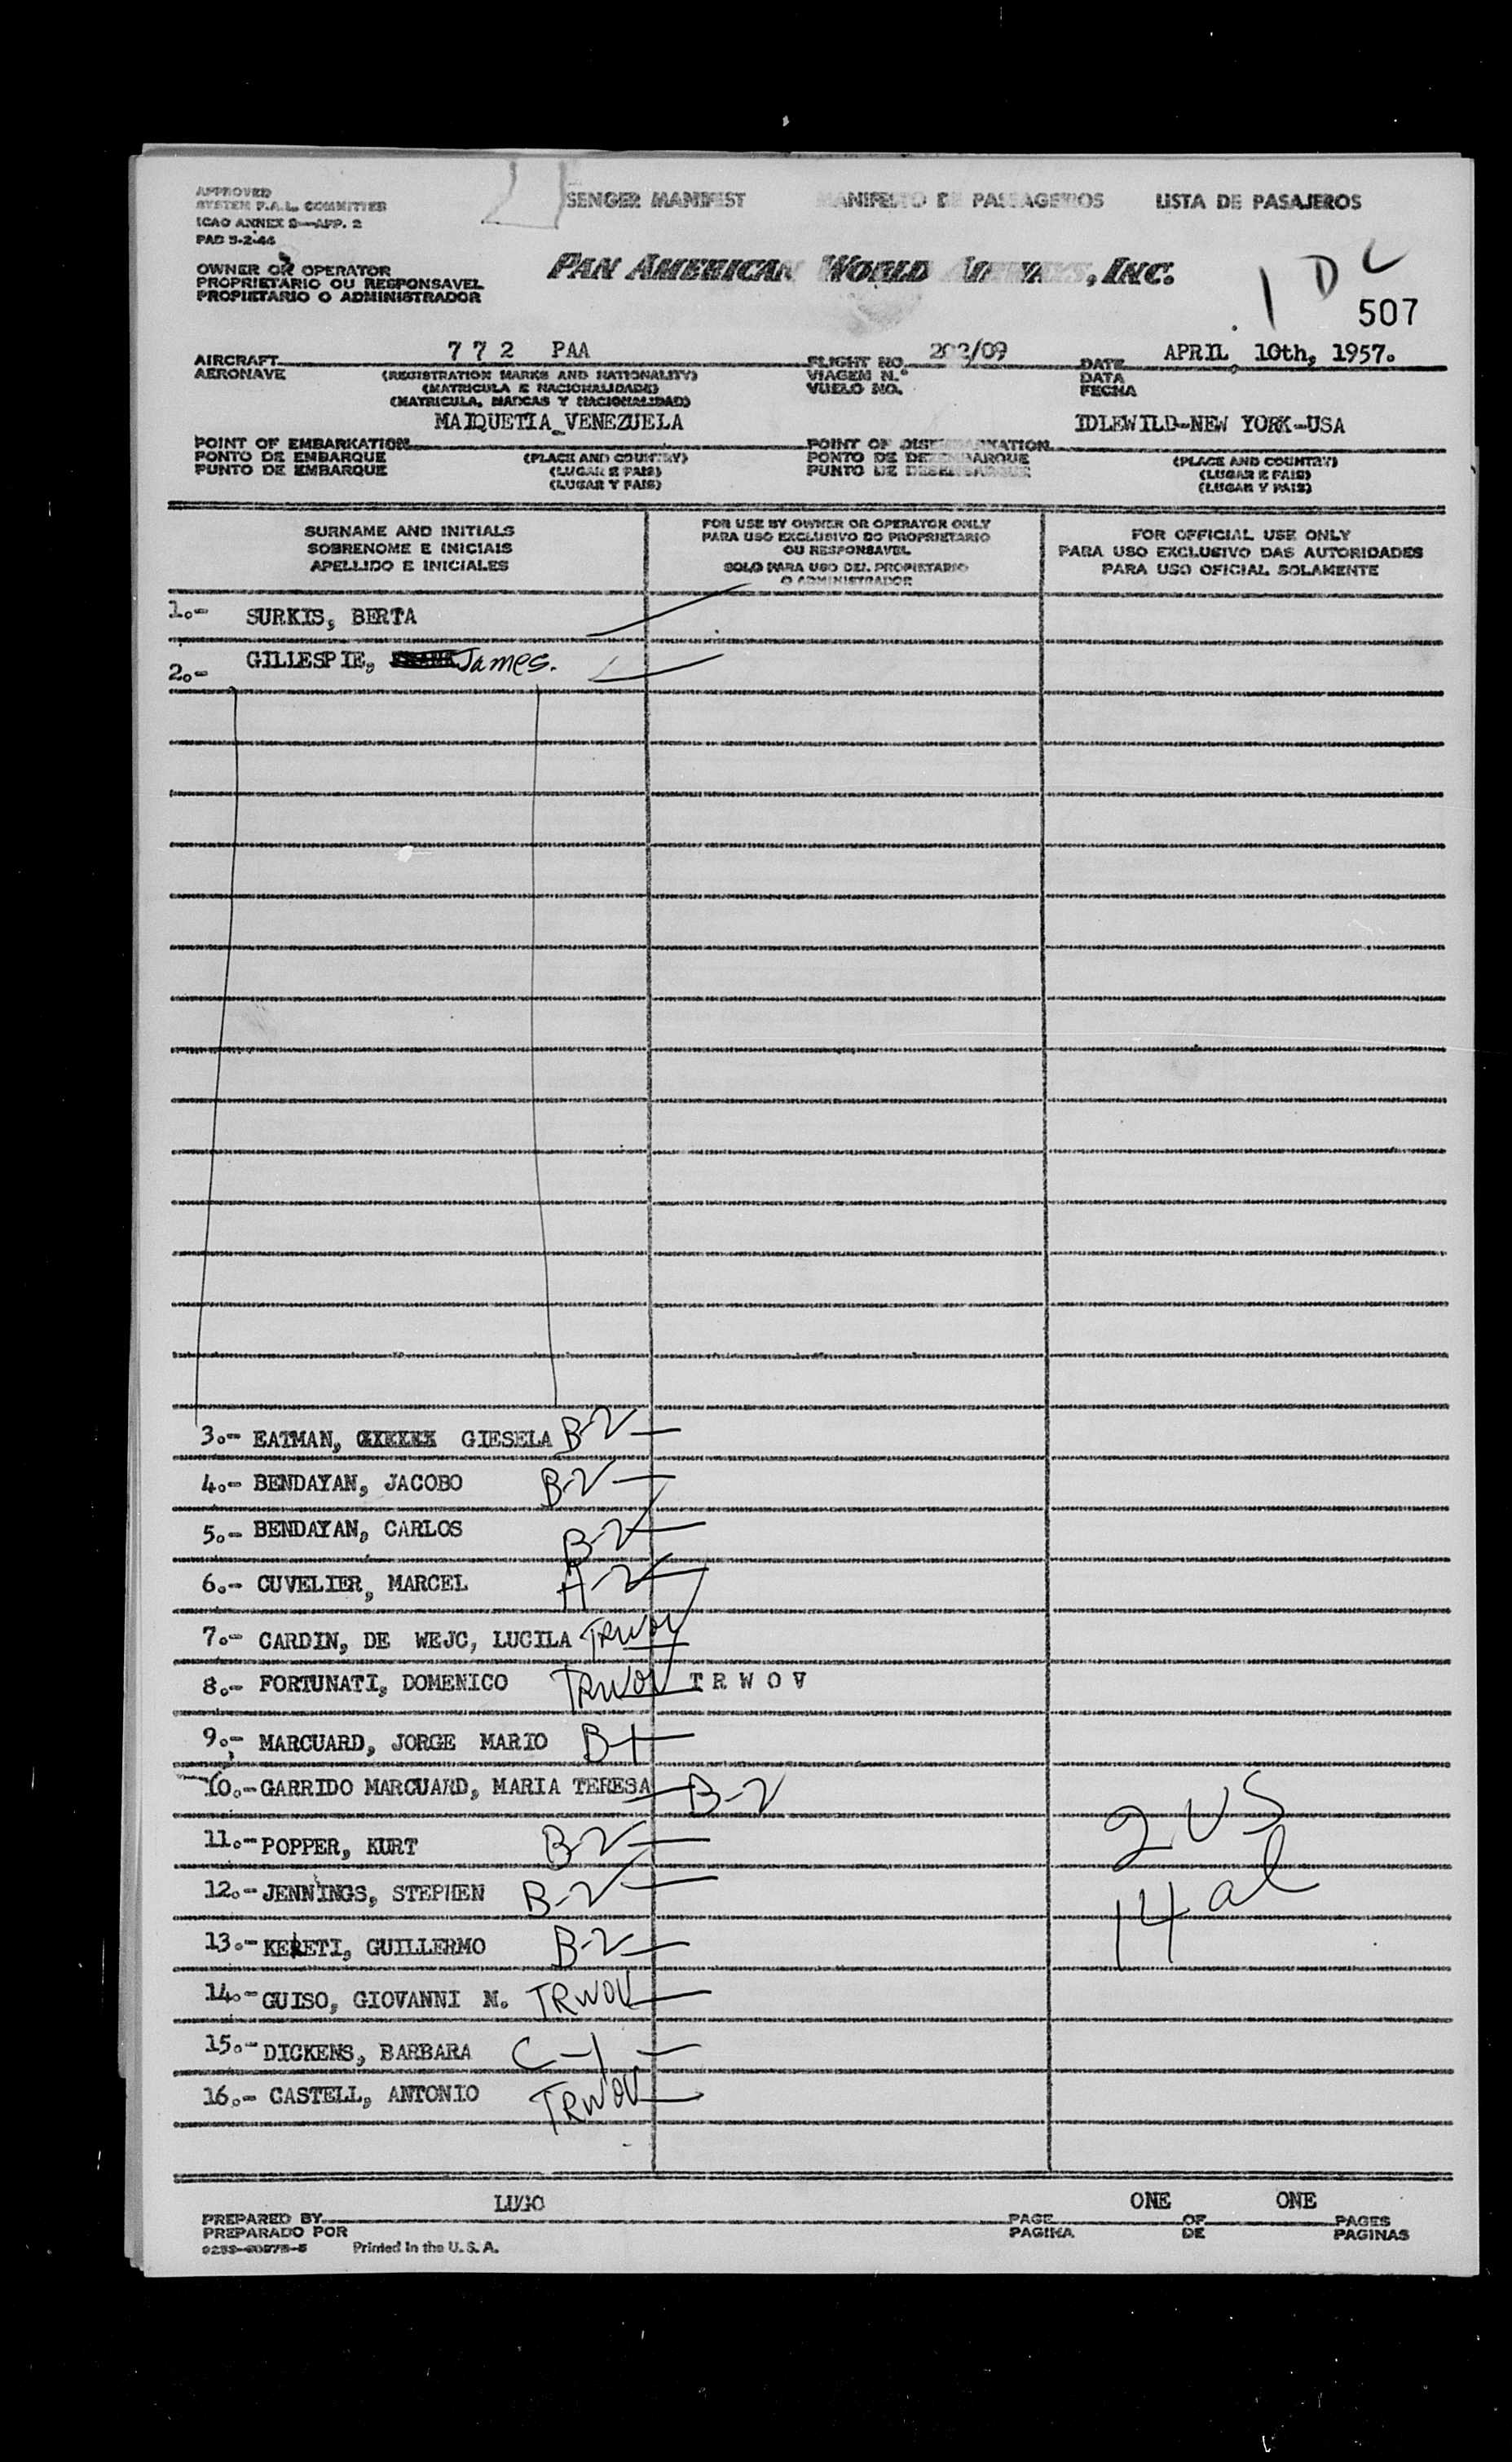 APPROVED
SYSTEM P.A.L. COMMITTEE
ICAO ANNEX 9—APP. 2
PAD 5-2-44
SENGER MANIFEST MANIFESTO DE PASSAGEIROS LISTA DE PASAJEROS
OWNER OR OPERATOR
PROPRIETARIO OU RESPONSAVEL
PROPIETARIO O ADMINISTRADOR
PAN AMERICAN WORLD AIRWAYS, INC.
507
AIRCRAFT 772 PAA FLIGHT NO. 202/09 DATE APRIL 10th, 1957.
AERONAVE (REGISTRATION MARKS AND NATIONALITY) VIAGEM N.° DATA
(MATRICULA E NACIONALIDADE) VUELO NO. FECHA
(MATRICULA, MARCAS Y NACIONALIDAD)
MAIQUETIA VENEZUELA IDLEWILD-NEW YORK-USA
POINT OF EMBARKATION POINT OF DISEMBARKATION
PONTO DE EMBARQUE (PLACE AND COUNTRY) PONTO DE DEZEMBARQUE (PLACE AND COUNTRY)
PUNTO DE EMBARQUE (LUGAR E PAIS) PUNTO DE DESEMBARQUE (LUGAR E PAIS)
(LUGAR Y PAIS) (LUGAR Y PAIS)
SURNAME AND INITIALS
SOBRENOME E INICIAIS
APELLIDO E INICIALES
FOR USE BY OWNER OR OPERATOR ONLY
PARA USO EXCLUSIVO DO PROPRIETARIO
OU RESPONSAVEL
SOLO PARA USO DEL PROPIETARIO
O ADMINISTRADOR
FOR OFFICIAL USE ONLY
PARA USO EXCLUSIVO DAS AUTORIDADES
PARA USO OFICIAL SOLAMENTE
1.- SURKIS, BERTA
2.- GILLESPIE, James.
3.- EATMAN, GIESELA B-2
4.- BENDAYAN, JACOBO B-2
5.- BENDAYAN, CARLOS B-2
6.- CUVELIER, MARCEL A-2
7.- CARDIN, DE WEJC, LUCILA TRWOV
8.- FORTUNATI, DOMENICO TRWOV T R W O V
9.- MARCUARD, JORGE MARIO B-1
10.- GARRIDO MARCUARD, MARIA TERESA B-2
11.- POPPER, KURT B-2
12.- JENNINGS, STEPHEN B-2
13.- KERETI, GUILLERMO B-2
14.- GUISO, GIOVANNI M. TRWOV
15.- DICKENS, BARBARA C-1
16.- CASTELL, ANTONIO TRWOV
2 US
14 al
PREPARED BY LUGO PAGE ONE OF ONE PAGES
PREPARADO POR PAGINA DE PAGINAS
Printed in the U.S.A.